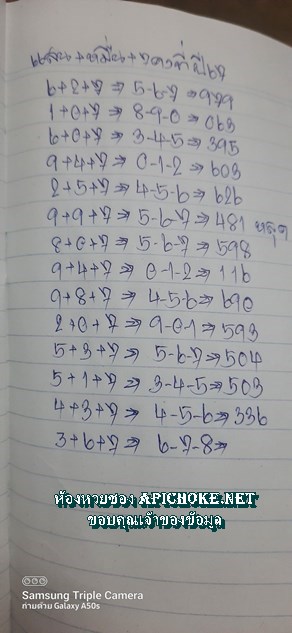 แสน+หมื่น+7คงที่ปี67
6+2+7⇒ 5-6-7⇒979
1+0+7⇒ 8-9-0⇒063
6+0+7⇒ 3-4-5⇒395
9+4+7⇒ 0-1-2⇒603
2+5+7⇒ 4-5-6⇒626
9+9+7⇒ 5-6-7⇒481 หลุด
8+0+7⇒ 5-6-7⇒598
9+4+7⇒ 0-1-2⇒116
9+8+7⇒ 4-5-6⇒690
2+0+7⇒ 9-0-1⇒593
5+3+7⇒ 5-6-7⇒504
5+1+7⇒ 3-4-5⇒503
4+3+7⇒ 4-5-6⇒336
3+6+7⇒ 6-7-8⇒
ห้องหวยซอง APICHOKE.NET
ขอบคุณเจ้าของข้อมูล
Samsung Triple Camera
ถ่ายด้วย Galaxy A50s